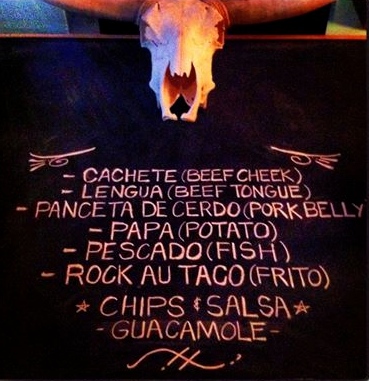 - CACHETE (BEEF CHEEK)
- LENGUA (BEEF TONGUE)
- PANCETA DE CERDO (PORK BELLY
- PAPA (POTATO)
- PESCADO (FISH)
- ROCK AU TACO (FRITO)
☆ CHIPS & SALSA ☆
- GUACAMOLE -